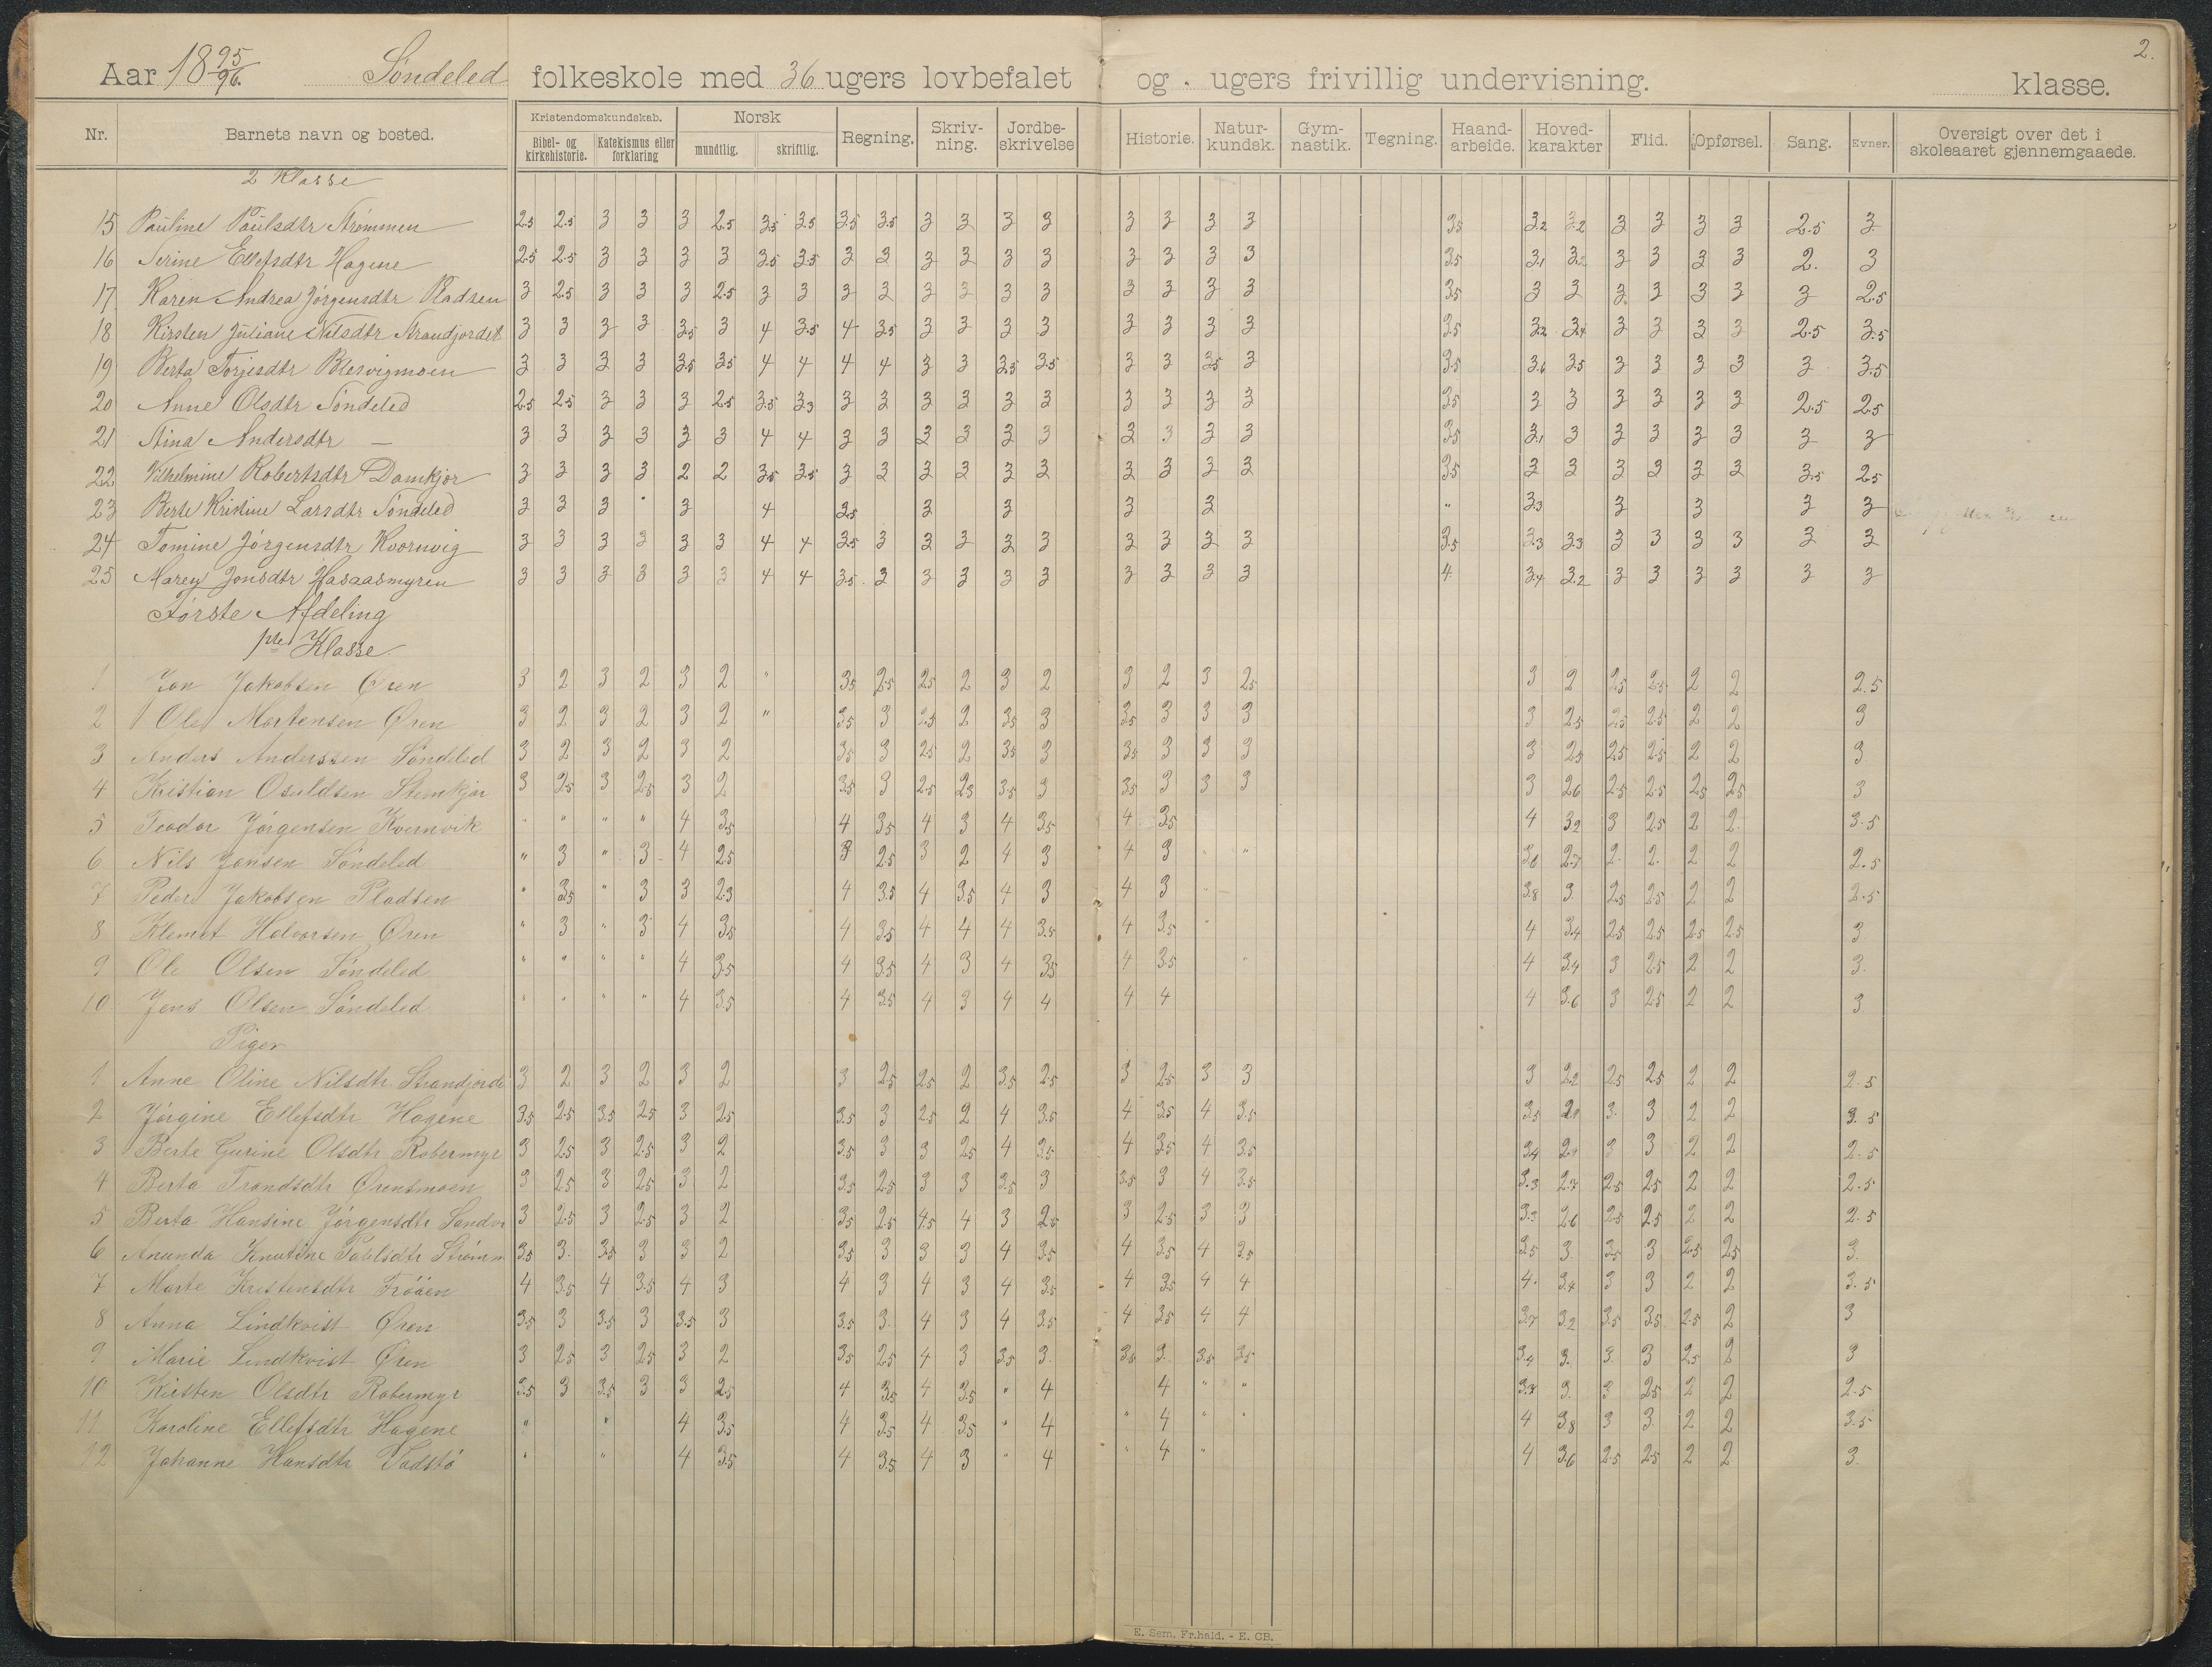 2.
Aar 18 95/96. Söndeled folkeskole med 36 ugers lovbefalet og . ugers frivillig undervisning. klasse.
Nr. Barnets navn og bosted. Kristendomskundskab. Bibel- og kirkehistorie. Katekismus eller forklaring Norsk mundtlig. skriftlig. Regning. Skriv-ning. Jordbe-skrivelse Historie. Natur-kundsk. Gym-nastik. Tegning. Haand-arbeide. Hoved-karakter Flid. Opførsel. Sang. Evner. Oversigt over det i skoleaaret gjennemgaaede.
2 Klasse
15 Pauline Paulsdtr Strømmen 2.5 2.5 3 3 3 2.5 3.5 3.5 3.5 3.5 3 3 3 3 3 3 3 3 3.5 3.2 3.2 3 3 3 3 2.5 3
16 Serine Ellefsdtr Hagene 2.5 2.5 3 3 3 3 3.5 3.5 3 3 3 3 3 3 3 3 3 3 3.5 3.1 3.2 3 3 3 3 2. 3
17 Karen Andrea Jörgensdtr Pladsen 3 2.5 3 3 3 2.5 3 3 3 3 3 3 3 3 3 3 3 3 3.5 3 3 3 3 3 3 3 2.5
18 Kirsten Juliane Nilsdtr Strandjordet 3 3 3 3 3.5 3 4 3.5 4 3.5 3 3 3 3 3 3 3 3 3.5 3.2 3.4 3 3 3 3 2.5 3.5
19 Berta Torjesdtr Blesvigmoen 3 3 3 3 3.5 3.5 4 4 4 4 3 3 3.5 3.5 3 3 3.5 3 3.5 3.6 3.5 3 3 3 3 3 3.5
20 Anne Olsdtr Söndeled 2.5 2.5 3 3 3 2.5 3.5 3.3 3 3 3 3 3 3 3 3 3 3 3.5 3 3 3 3 3 3 2.5 2.5
21 Stina Andersdtr — 3 3 3 3 3 3 4 4 3 3 3 3 3 3 3 3 3 3 3.5 3.1 3 3 3 3 3 3 3
22 Vilhelmine Robertsdtr Damkjær 3 3 3 3 2 2 3.5 3.5 3 3 3 3 3 3 3 3 3 3 3.5 3 3 3 3 3 3 3.5 2.5
23 Berte Kristine Larsdtr Söndeled 3 3 3 " 3 4 3.5 3 3 3 3 " 3.3 3 3 3 3
24 Tomine Jörgensdtr Kvernvig 3 3 3 3 3 3 4 4 3.5 3 3 3 3 3 3 3 3 3 3.5 3.3 3.3 3 3 3 3 3 3
25 Maren Jonsdtr Hasaasmyren 3 3 3 3 3 3 4 4 3.5 3 3 3 3 3 3 3 3 3 4 3.4 3.2 3 3 3 3 3 3
Förste Afdeling
1ste Klasse
1 Jon Jakobsen Øren 3 2 3 2 3 2 " 3.5 2.5 2.5 2 3 2 3 2 3 2.5 3 2 2.5 2.5 2 2 2.5
2 Ole Martensen Øren 3 2 3 2 3 2 " 3.5 3 2.5 2 3.5 3 3.5 3 3 3 3 2.5 2.5 2.5 2 2 3
3 Anders Anderssen Söndeled 3 2 3 2 3 2 3.5 3 2.5 2 3.5 3 3.5 3 3 3 3 2.5 2.5 2.5 2 2 3
4 Kristian Osuldsen Stemkjær 3 2.5 3 2.5 3 2 3.5 3 2.5 2.3 3.5 3 3.5 3 3 3 3 2.6 2.5 2.5 2.5 2.5 3
5 Teodor Jörgensen Kvernvik " " " " 4 3.5 4 3.5 4 3 4 3.5 4 3.5 4 3.2 3 2.5 2 2 3.5
6 Nils Jansen Söndeled " 3 " 3 4 2.5 3 2.5 3 2 4 3 4 3 " " 3.6 2.7 2 2. 2 2 2.5
7 Peder Jakobsen Pladsen " 3.5 " 3 3 2.3 4 3.5 4 3.5 4 3 4 3 " 3.8 3. 2.5 2.5 2 2 2.5
8 Klemet Halvorsen Øren " 3 " 3 4 3.5 4 3.5 4 4 4 3.5 4 3.5 " 4 3.4 2.5 2.5 2.5 2.5 3
9 Ole Olsen Söndeled " " " " 4 3.5 4 3.5 4 3 4 3.5 4 3.5 " 4 3.4 3 2.5 2 2 3.
10 Jens Olsen Söndeled " " " " 4 3.5 4 3.5 4 3 4 4 4 4 4 3.6 3 2.5 2 2 3
Piger
1 Anne Oline Nilsdtr Strandjorde 3 2 3 2 3 2 3 2.5 2.5 2 3.5 2.5 3 2.5 3 3 3 2.2 2.5 2.5 2 2 2.5
2 Jörgine Ellefsdtr Hagene 3.5 2.5 3.5 2.5 3 2.5 3.5 3 2.5 2 4 3.5 4 3.5 4 3.5 3.5 2.9 3. 3 2 2 3.5
3 Berte Gurine Olsdtr Røbermyr 3 2.5 3 2.5 3 2 3.5 3 3 2.5 4 3.5 4 3.5 4 3.5 3.4 2.9 3 3 2 2 2.5
4 Berta Trondsdtr Ørensmoen 3 2.5 3 2.5 3 2 3.5 2.5 3 3 3.5 3 3.5 3 4 3.5 3.3 2.7 2.5 2.5 2 2 2.5
5 Berta Hansine Jörgensdtr Sandv 3 2.5 3 2.5 3 2 3.5 2.5 4.5 4 3 2.5 3 2.5 3 3 3.3 2.6 2.5 2.5 2 2 2.5
6 Anunda Knutine Paulsdtr Strømm 3.5 3. 3.5 3 3 2 3.5 3 3 3 4 3.5 4 3.5 4 3.5 3.5 3 3.5 3 2.5 2.5 3.
7 Marte Kristensdtr Fröåen 4 3.5 4 3.5 4 3 4 3 4 3 4 3.5 4 3.5 4 4 4. 3.4 3 3 2 2 3.5
8 Anna Lindkvist Øren 3.5 3 3.5 3 3.5 3 3.5 3. 4 3 4 3.5 4 3.5 4 4 3.7 3.2 3.5 3.5 2.5 2 3
9 Marie Lindkvist Øren 3 2.5 3 2.5 3 2 3.5 2.5 4 3 3.5 3. 3.5 3. 3.5 3.5 3.4 3. 3. 3 2.5 2 3
10 Kirsten Olsdtr Røbermyr 3.5 3 3.5 3 3 2.5 4 3.5 4 3.5 " 4 4 " " 3.7 3. 3 2.5 2 2 2.5
11 Karoline Ellefsdtr Hagene " " 4 3.5 4 3.5 4 3.5 " 4 " 4 " " 4 3.8 3 3. 2 2 3.5
12 Johanne Hansdtr Vadstö " " 4 3.5 4 3.5 4 3 " 4 " 4 " 4 3.6 2.5 2.5 2 2 3.
E. Sem. Fr.hald. - E. CB.